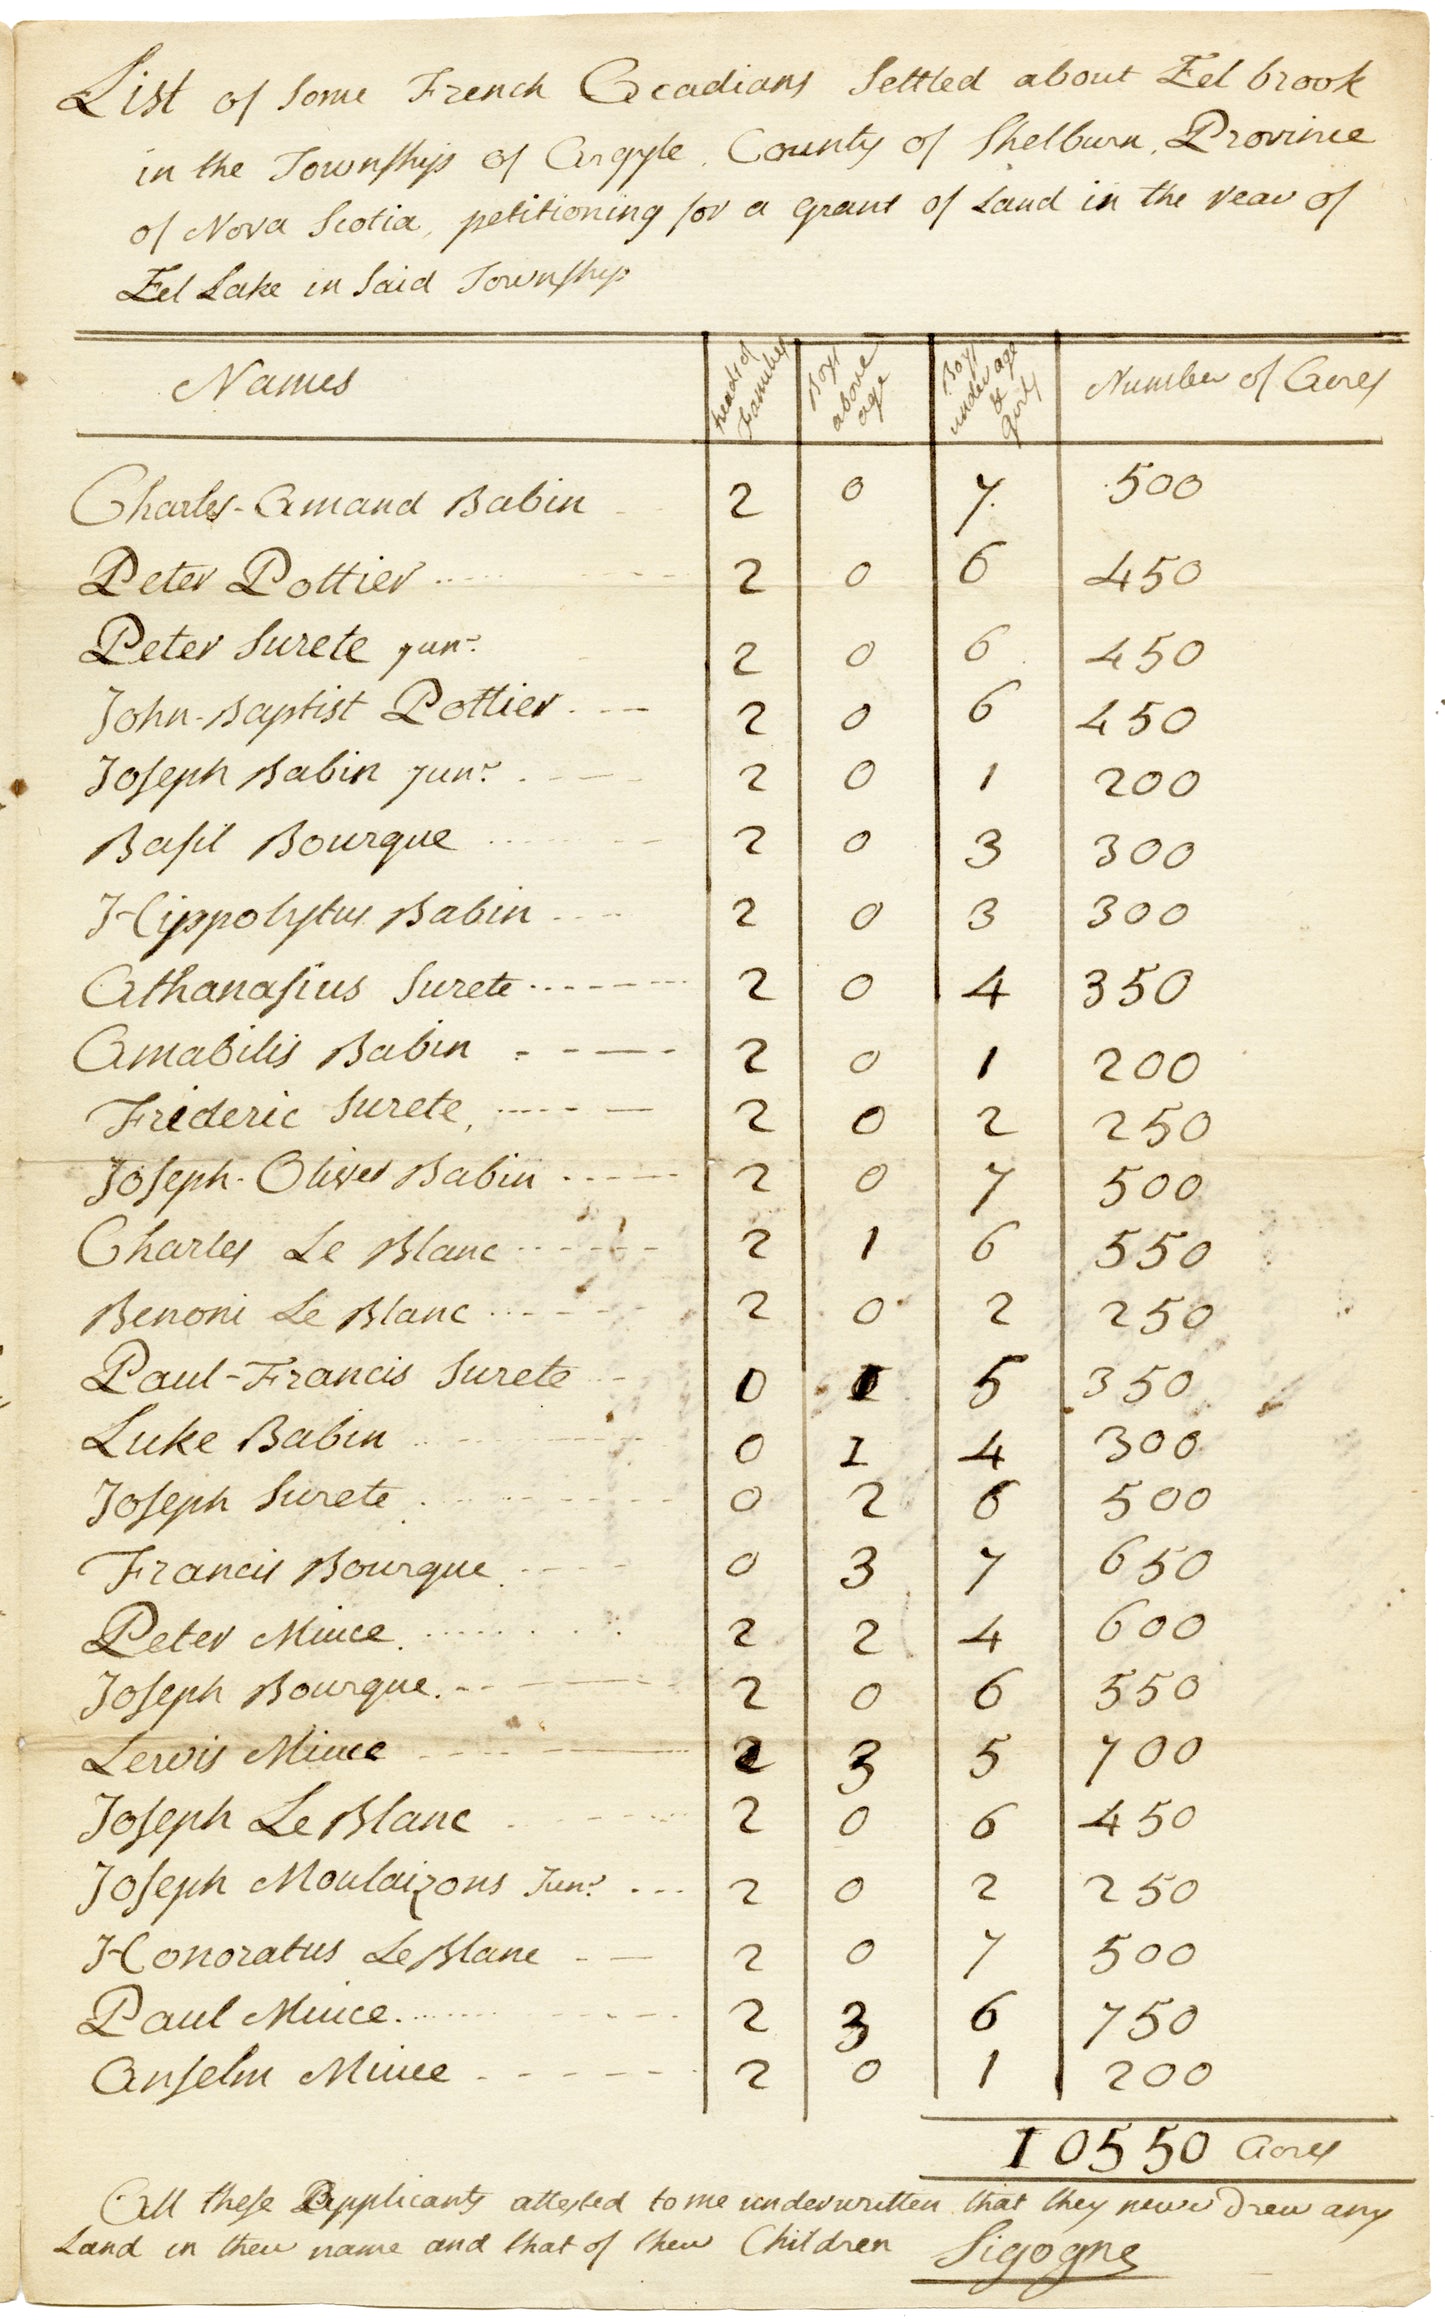 List of some French Acadians settled about Eel brook
in the Township of Argyle, County of Shelburn, Province
of Nova Scotia, petitioning for a grant of Land in the rear of
Eel Lake in said Township
Names heads of Families Boys above age Boys under age & girls Number of Acres
Charles-Amand Babin 2 0 7 500
Peter Pottier 2 0 6 450
Peter Surete junr 2 0 6 450
John-Baptist Pottier 2 0 6 450
Joseph Babin junr 2 0 1 200
Basil Bourque 2 0 3 300
Hippolytus Babin 2 0 3 300
Athanasius Surete 2 0 4 350
Amabilis Babin 2 0 1 200
Frideric Surete 2 0 2 250
Joseph-Oliver Babin 2 0 7 500
Charles Le Blanc 2 1 6 550
Benoni Le Blanc 2 0 2 250
Paul-Francis Surete 0 1 5 350
Luke Babin 0 1 4 300
Joseph Surete 0 2 6 500
Francis Bourque 0 3 7 650
Peter Miuce 2 2 4 600
Joseph Bourque 2 0 6 550
Lewis Miuce 2 3 5 700
Joseph Le Blanc 2 0 6 450
Joseph Moulaizons Junr 2 0 2 250
Honoratus Le Blanc 2 0 7 500
Paul Miuce 2 3 6 750
Anselm Miuce 2 0 1 200
10550 Acres
All these Applicants attested to me underwritten that they never Drew any
Land in their name and that of their Children Sigogne